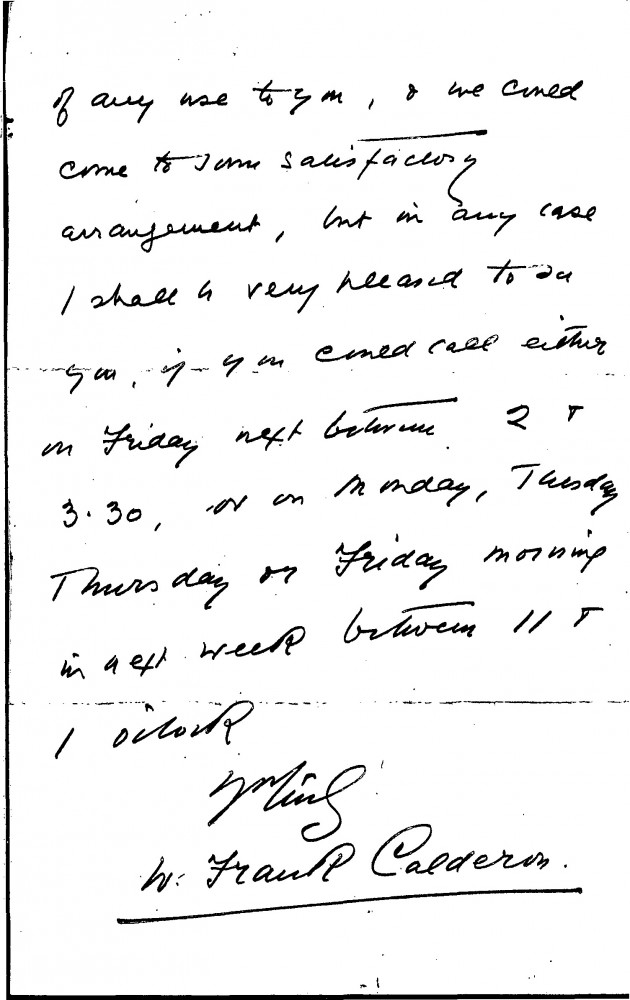 of any use to you, & we could
come to some satisfactory
arrangement, but in any case
I shall be very pleased to see
you, if you could call either
on Friday next between 2 &
3.30, or on Monday, Tuesday
Thursday or Friday morning
in next week between 11 &
1 o'clock
W. Frank Calderon.